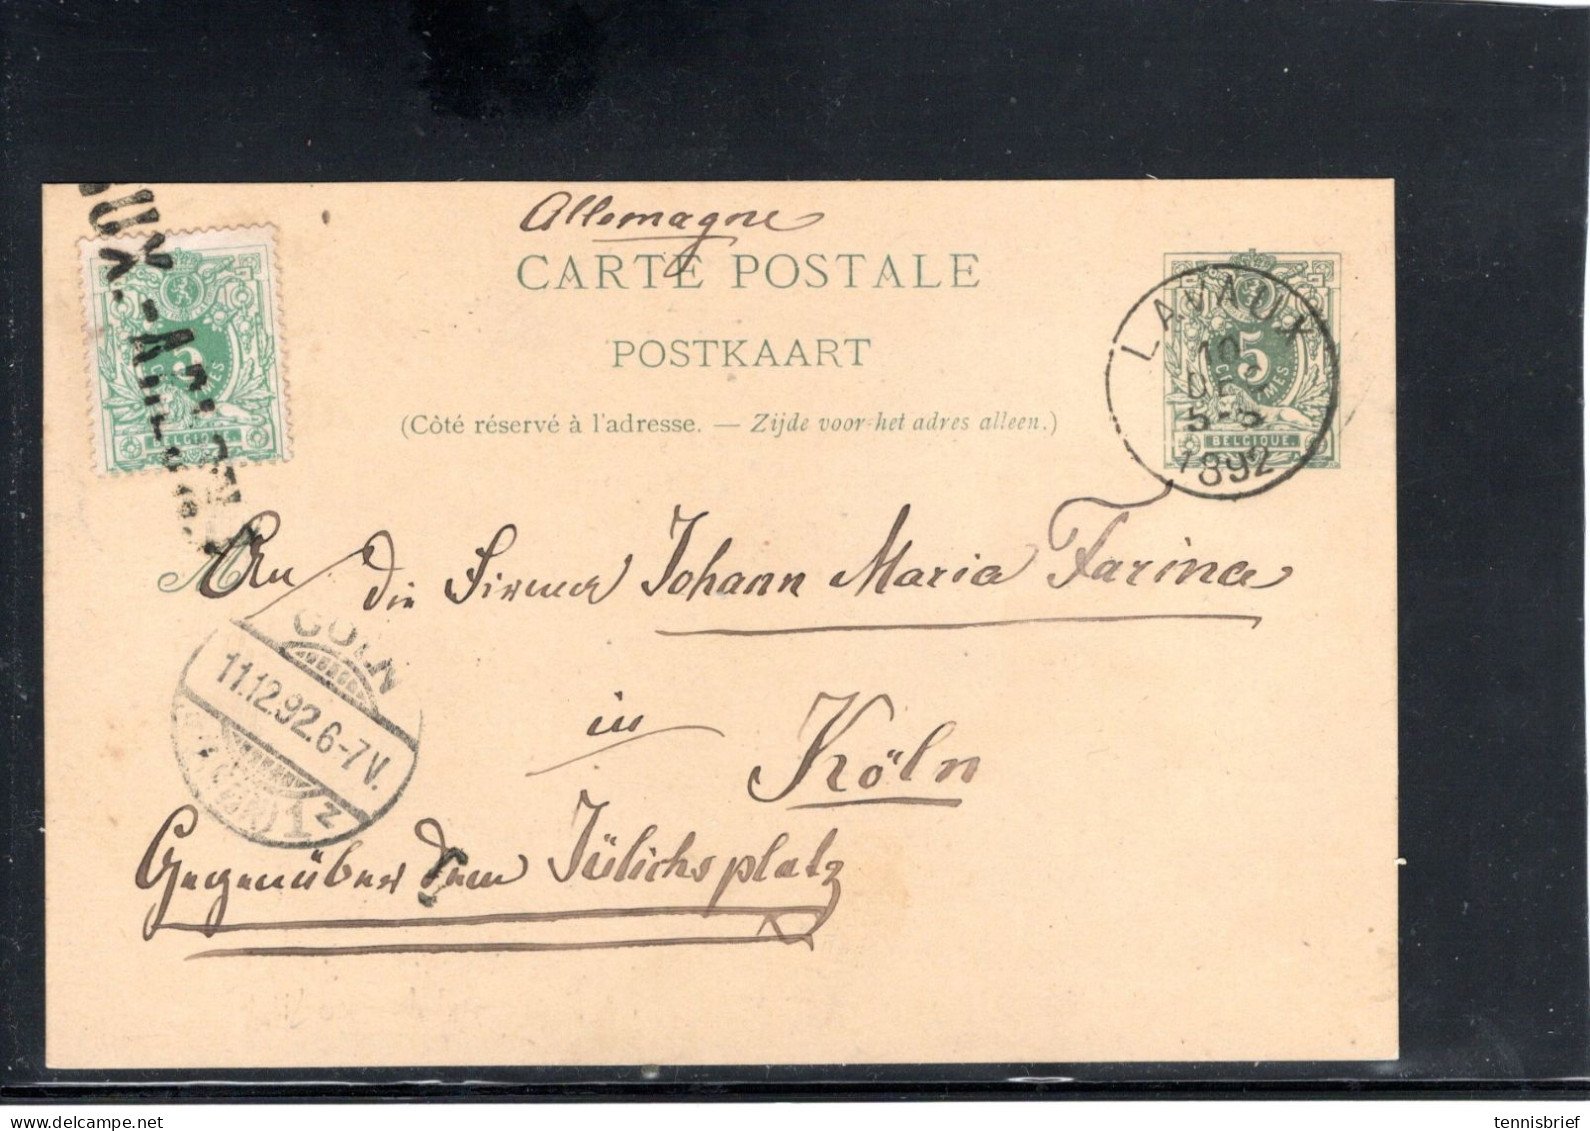 Allemagne
CARTE POSTALE
POSTKAART
(Côté réservé à l'adresse. — Zijde voor het adres alleen.)
5
BELGIQUE
5
CIMES
BELGIQUE
LAVAUX
10
DEC
1892
An die Firma Johann Maria Farina
CÖLN
11.12.92.6-7V.
1z
in
Köln
Gegenüber dem Jülichsplatz
tennisbrief